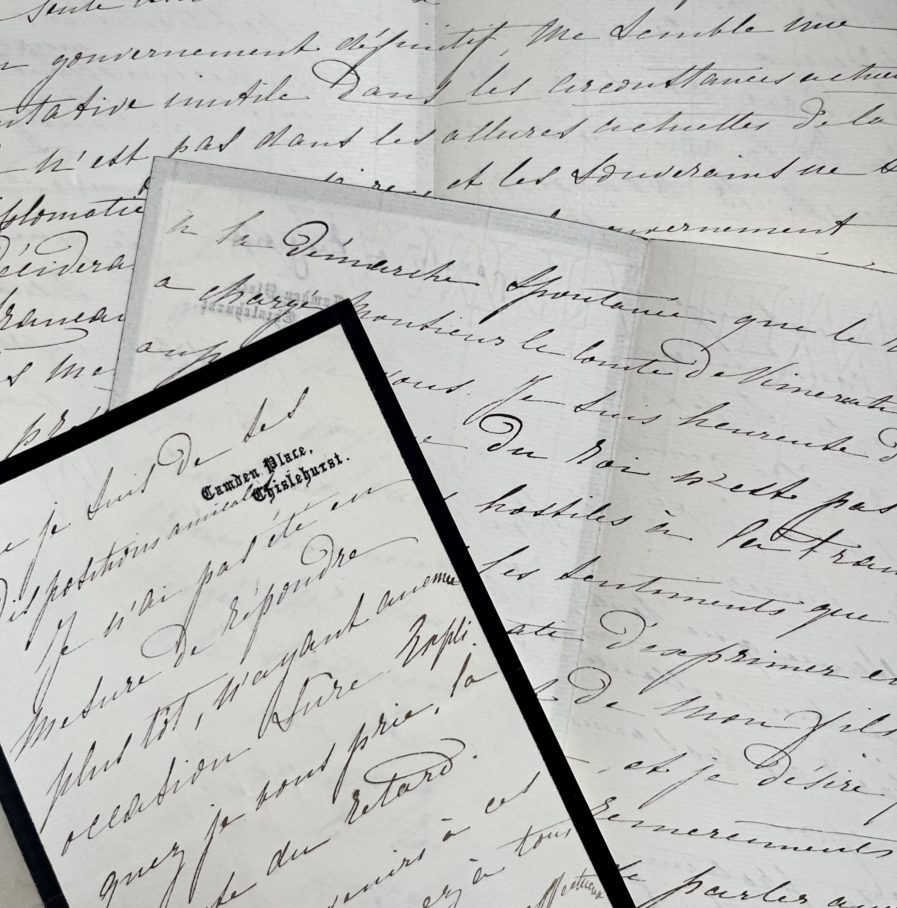 gouvernement définitif, me semble une
tentative inutile dans les circonstances actue
n'est pas dans les allures actuelles de la
et les Souverains ne
diplomatie
gouvernement
décidera
me
la démarche Spontanée que le
a chargé Monsieur le Comte de Vimerati
vous. Je suis heureuse d
du roi n'est pas
hostiles à la Fran
les sentiments que
d'exprimer en
de mon fils
et je désire
remerciements
parler
je suis de ses
Camden Place,
Chislehurst.
dispositions amicales
Je n'ai pas été en
mesure de répondre
plus tôt, n'ayant aucune
occasion Sûre Expli.
quez je vous prie, la
du retard.
à ces
ez à tous